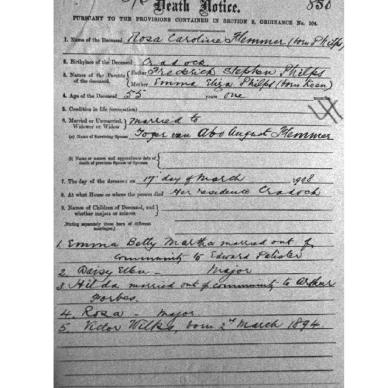 Death Notice.
850
PURSUANT TO THE PROVISIONS CONTAINED IN SECTION 2, ORDINANCE No. 104.
1. Name of the Deceased Rosa Caroline Flemmer (born Philps)
2. Birthplace of the Deceased Cradock
3. Names of the Parents of the deceased. Father Frederick Stephen Philps
Mother Emma Eliza Philps (born Keen)
4. Age of the Deceased 55 years one
5. Condition in life (occupation)
6. Married or Unmarried, Widower or Widow married to
(a) Name of Surviving Spouse August Flemmer
(b) Name or names and approximate date of death of previous Spouse or Spouses
7. The day of the decease on 17th day of March 1908
8. At what House or where the person died Her residence Cradock
9. Names of Children of Deceased, and whether majors or minors
(Stating separately those born of different marriages.)
1. Emma Betty Martha married out of
community to Edward
2. Daisy Ellen - Major
3 Hilda married out of community to Arthur
Forbes.
4. Rosa - Major
5. Victor born 2nd March 1894.